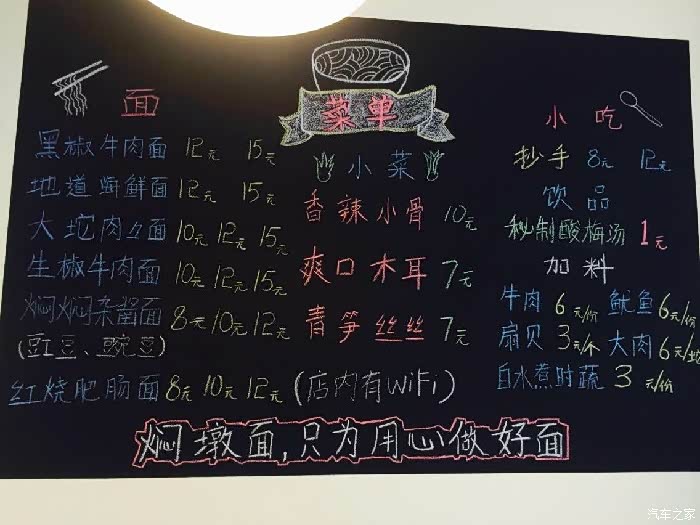 菜单
面
黑椒牛肉面 12元 15元
地道海鲜面 12元 15元
大坨肉肉面 10元 12元 15元
生椒牛肉面 10元 12元 15元
焖焖杂酱面 8元 10元 12元
(豇豆、豌豆)
红烧肥肠面 8元 10元 12元 (店内有WiFi)
小菜
香辣小骨 10元
爽口木耳 7元
青笋丝丝 7元
小吃
抄手 8元 12元
饮品
秘制酸梅汤 1元
加料
牛肉 6元/份 鱿鱼 6元/份
扇贝 3元/个 大肉 6元/坨
白水煮时蔬 3元/份
焖墩面,只为用心做好面
汽车之家